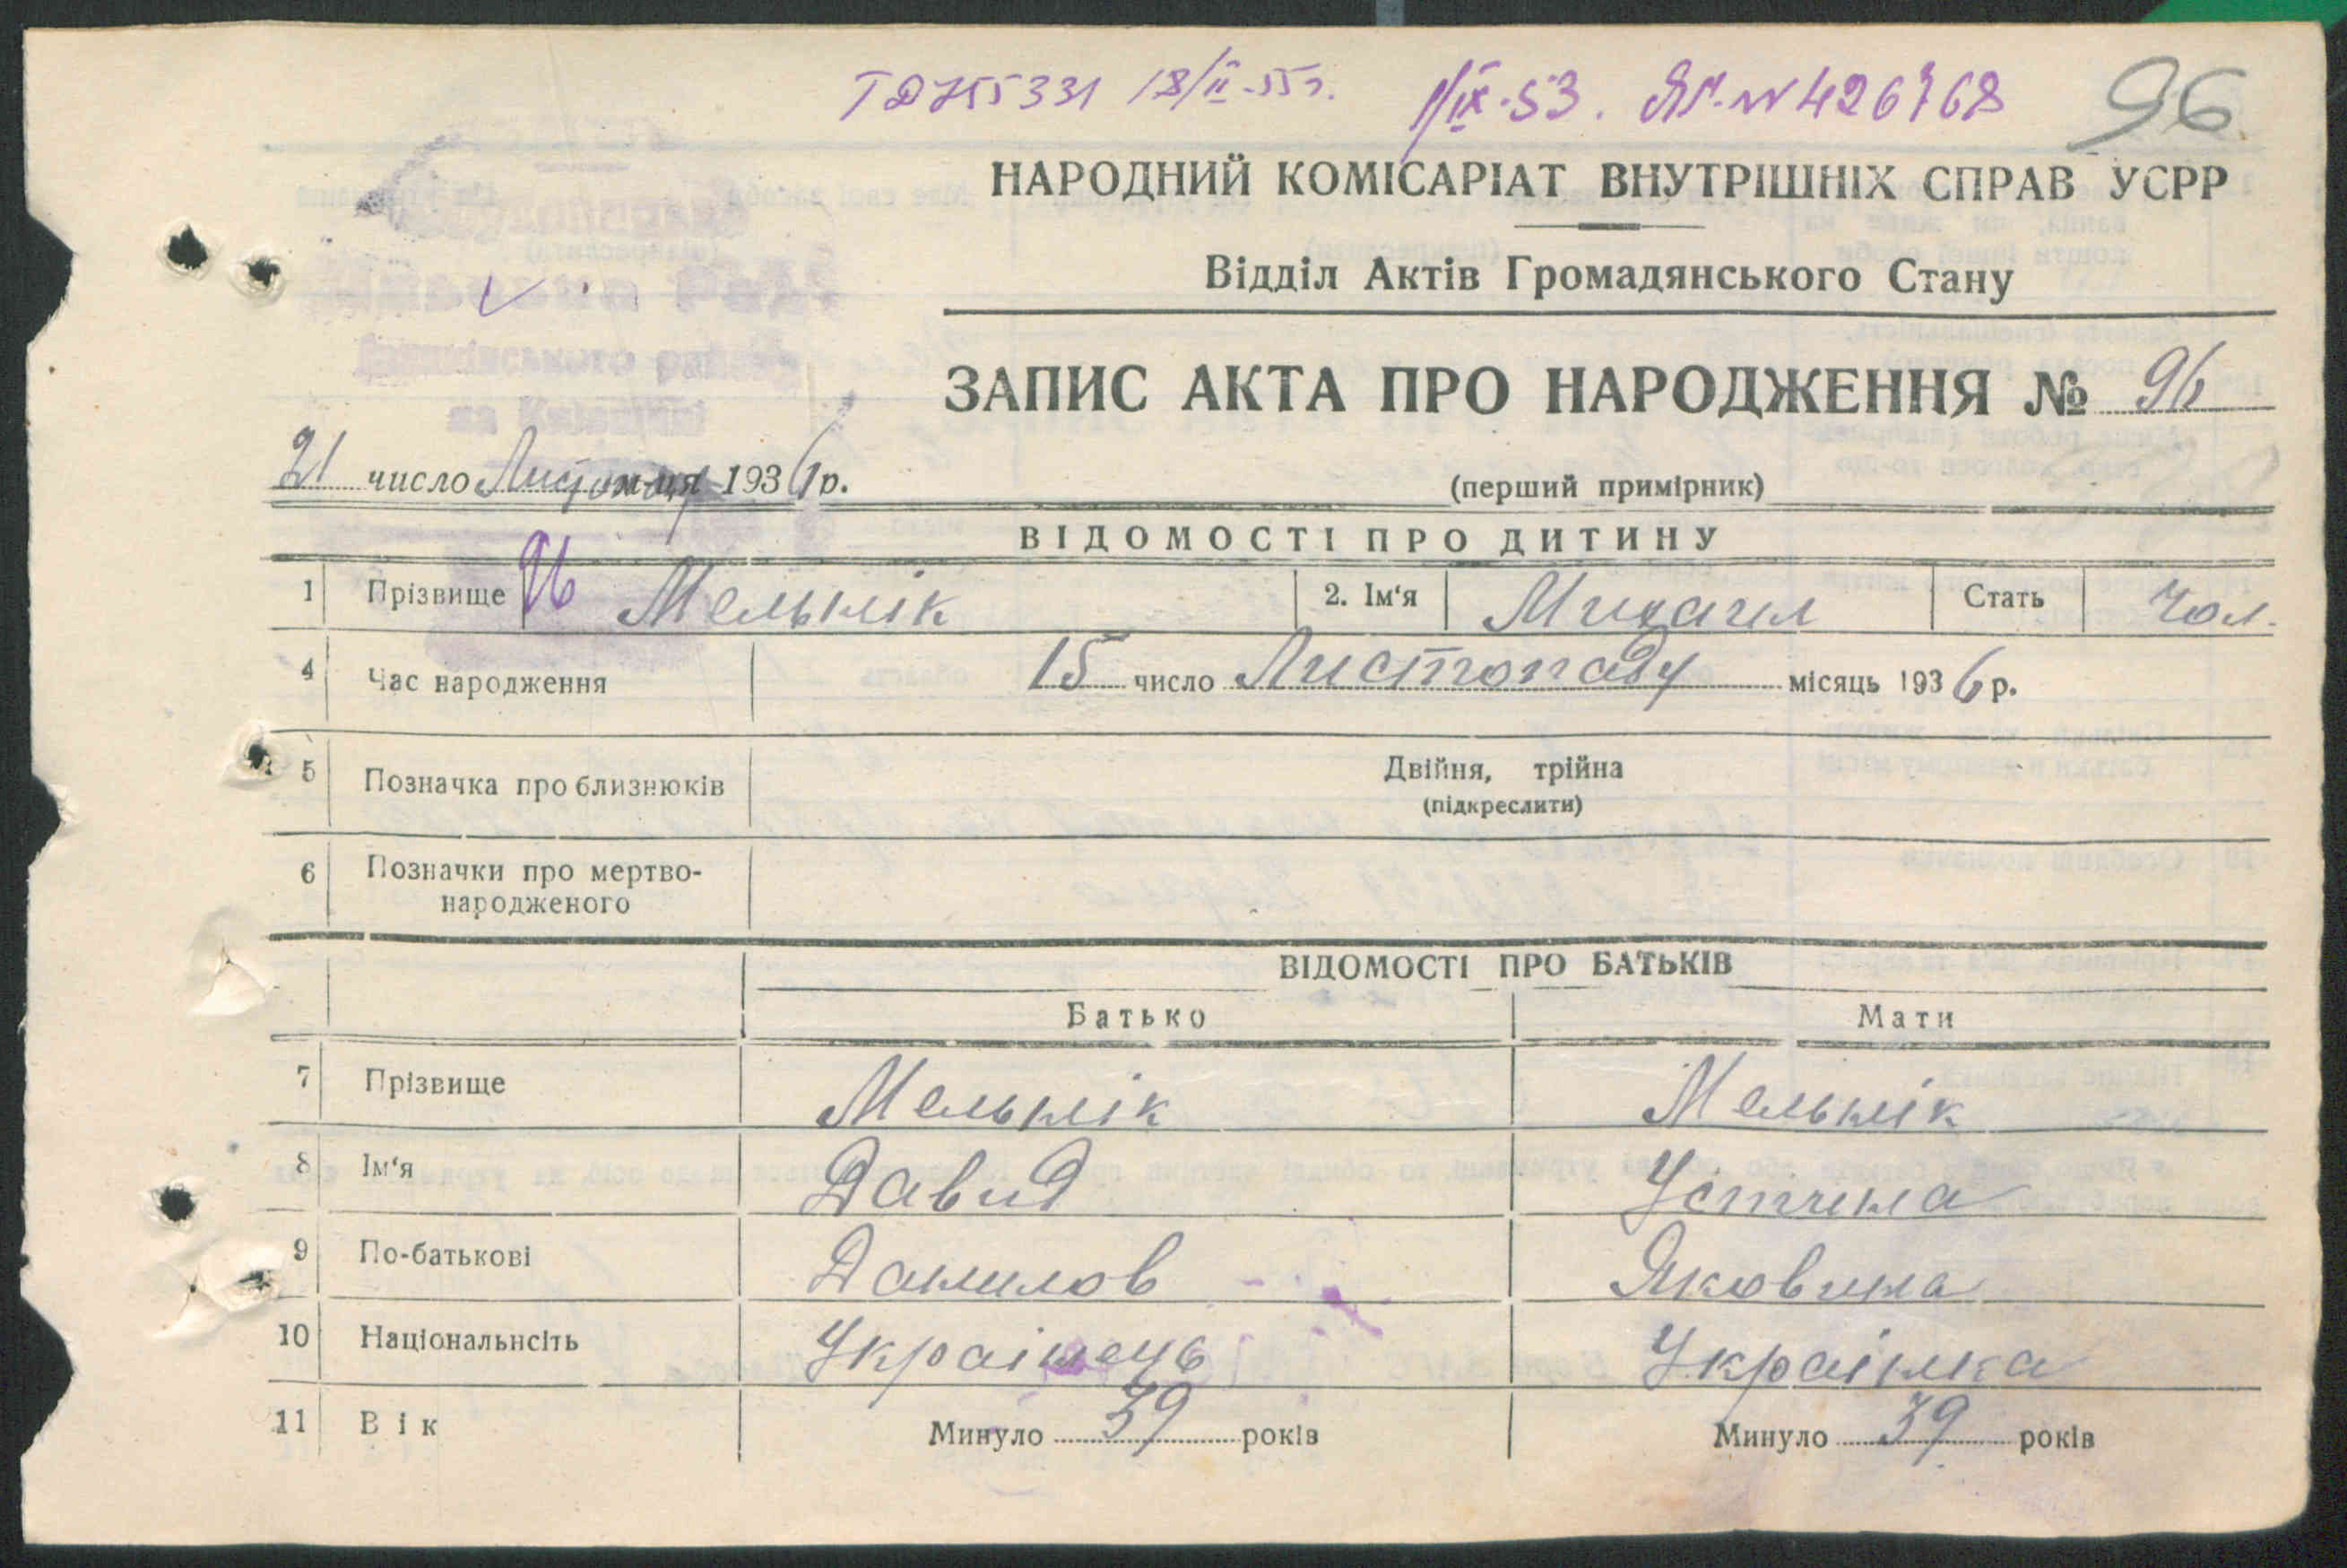 ТД 755331 18/ІІ-55г. 1/ІХ-53. ЯГ-№ 426768 96
НАРОДНИЙ КОМІСАРІАТ ВНУТРІШНІХ СПРАВ УСРР
Відділ Актів Громадянського Стану
ЗАПИС АКТА ПРО НАРОДЖЕННЯ № 96
21 число Листопаду м-ця 1936 р.
(перший примірник)
ВІДОМОСТІ ПРО ДИТИНУ
1 Прізвище 96 Мельнік 2. Ім‘я Михаил Стать Чол.
4 Час народження 15 число Листопаду місяць 1936 р.
5 Позначка про близнюків Двійня, трійна
(підкреслити)
6 Позначки про мертво-
народженого
ВІДОМОСТІ ПРО БАТЬКІВ
Батько Мати
7 Прізвище Мельнік Мельнік
8 Ім‘я Давид Устина
9 По-батькові Данилов Яковина
10 Національнсіть Украінець Украінка
11 Вік Минуло 39 років Минуло 39 років